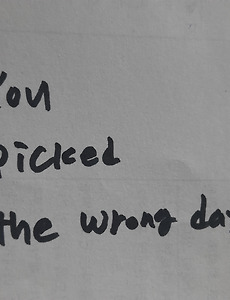 You
picked
the wrong day